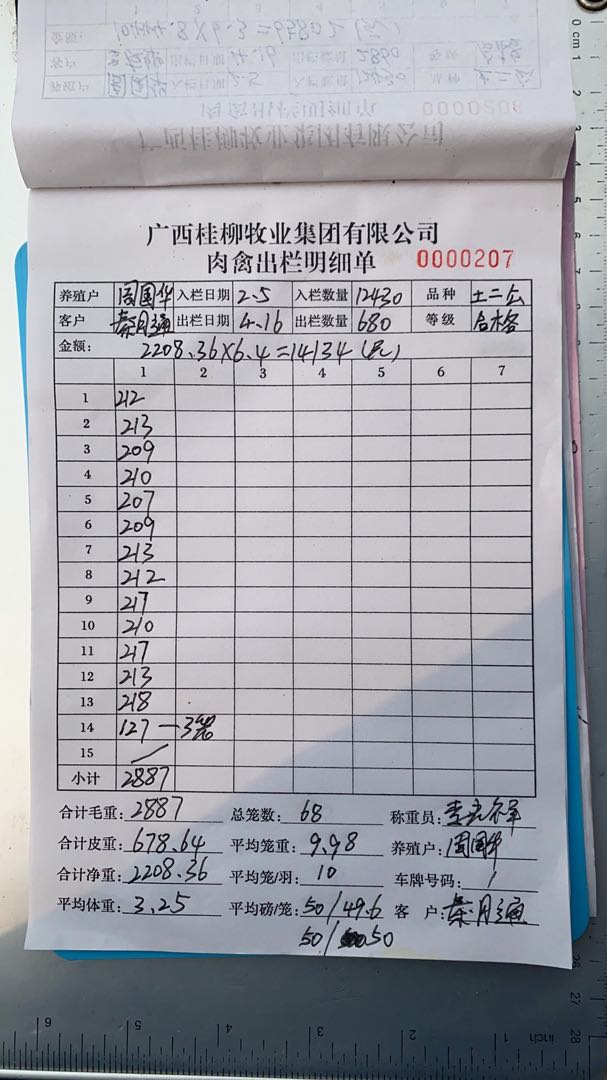 广西桂柳牧业集团有限公司
肉禽出栏明细单 0000207
养殖户 周国华 入栏日期 2.5 入栏数量 12430 品种 土二公
客户 秦月通 出栏日期 4.16 出栏数量 680 等级 合格
金额: 2208.36×6.4=14134(元)
1 2 3 4 5 6 7
1 212
2 213
3 209
4 210
5 207
6 209
7 213
8 212
9 217
10 210
11 217
12 213
13 218
14 127 一3笼
15
小计 2887
合计毛重: 2887 总笼数: 68 称重员:
合计皮重: 678.64 平均笼重: 9.98 养殖户: 周国华
合计净重: 2208.36 平均笼/羽: 10 车牌号码: /
平均体重: 3.25 平均磅/笼: 50/49.6 客 户: 秦月通
50/50